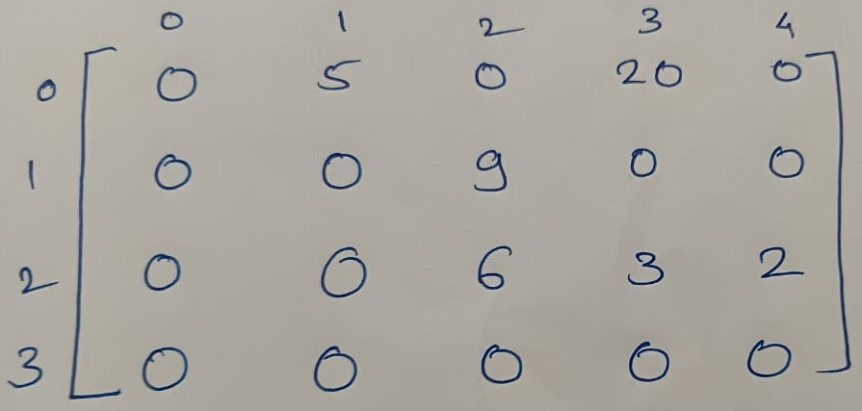 0 1 2 3 4
0 0 5 0 20 0
1 0 0 9 0 0
2 0 0 6 3 2
3 0 0 0 0 0